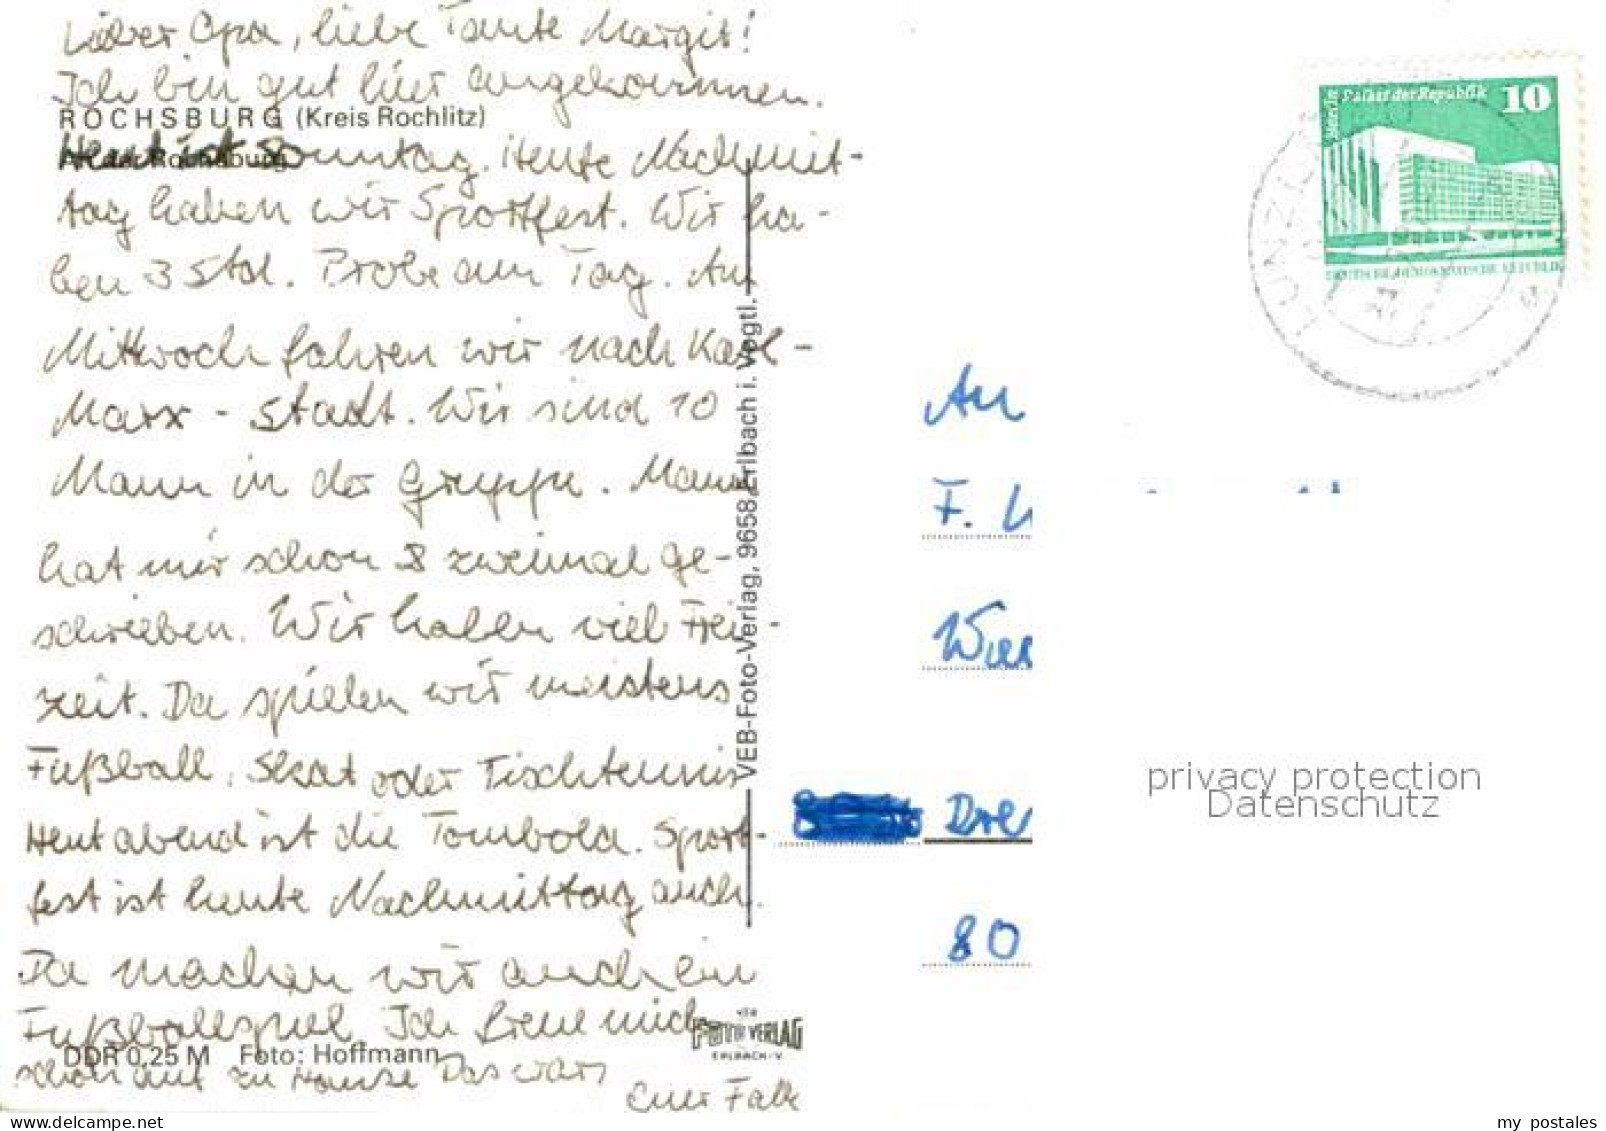 Lieber Opa, liebe Tante Margit!
Ich bin gut hier angekommen.
ROCHSBURG (Kreis Rochlitz)
An der Rochsburg
Heut ist Sonntag. Heute Nachmit-
tag haben wir Sportfest. Wir ha-
ben 3 Std. Probe am Tag. Am
Mittwoch fahren wir nach Karl-
Marx-Stadt. Wir sind 10
Mann in der Gruppe. Mann
hat mir schon zweimal ge-
schrieben. Wir haben viel Frei-
zeit. Da spielen wir meistens
Fußball, Skat oder Tischtennis
Heut abend ist die Tombola. Sport-
fest ist heute Nachmittag auch.
Da machen wir auch ein
Fußballspiel. Ich freue mich
schon auf zu Hause Das wars
Euer Falk
DDR 0,25 M Foto: Hoffmann
VEB
FOTO VERLAG
ERLBACH/V
VEB-Foto-Verlag, 9658 Erlbach i. Vogtl.
Berlin
Palast der Republik 10
DEUTSCHE DEMOKRATISCHE REPUBLIK
An
F.
Dre
80
privacy protection
Datenschutz
delcampe.net
my_postales